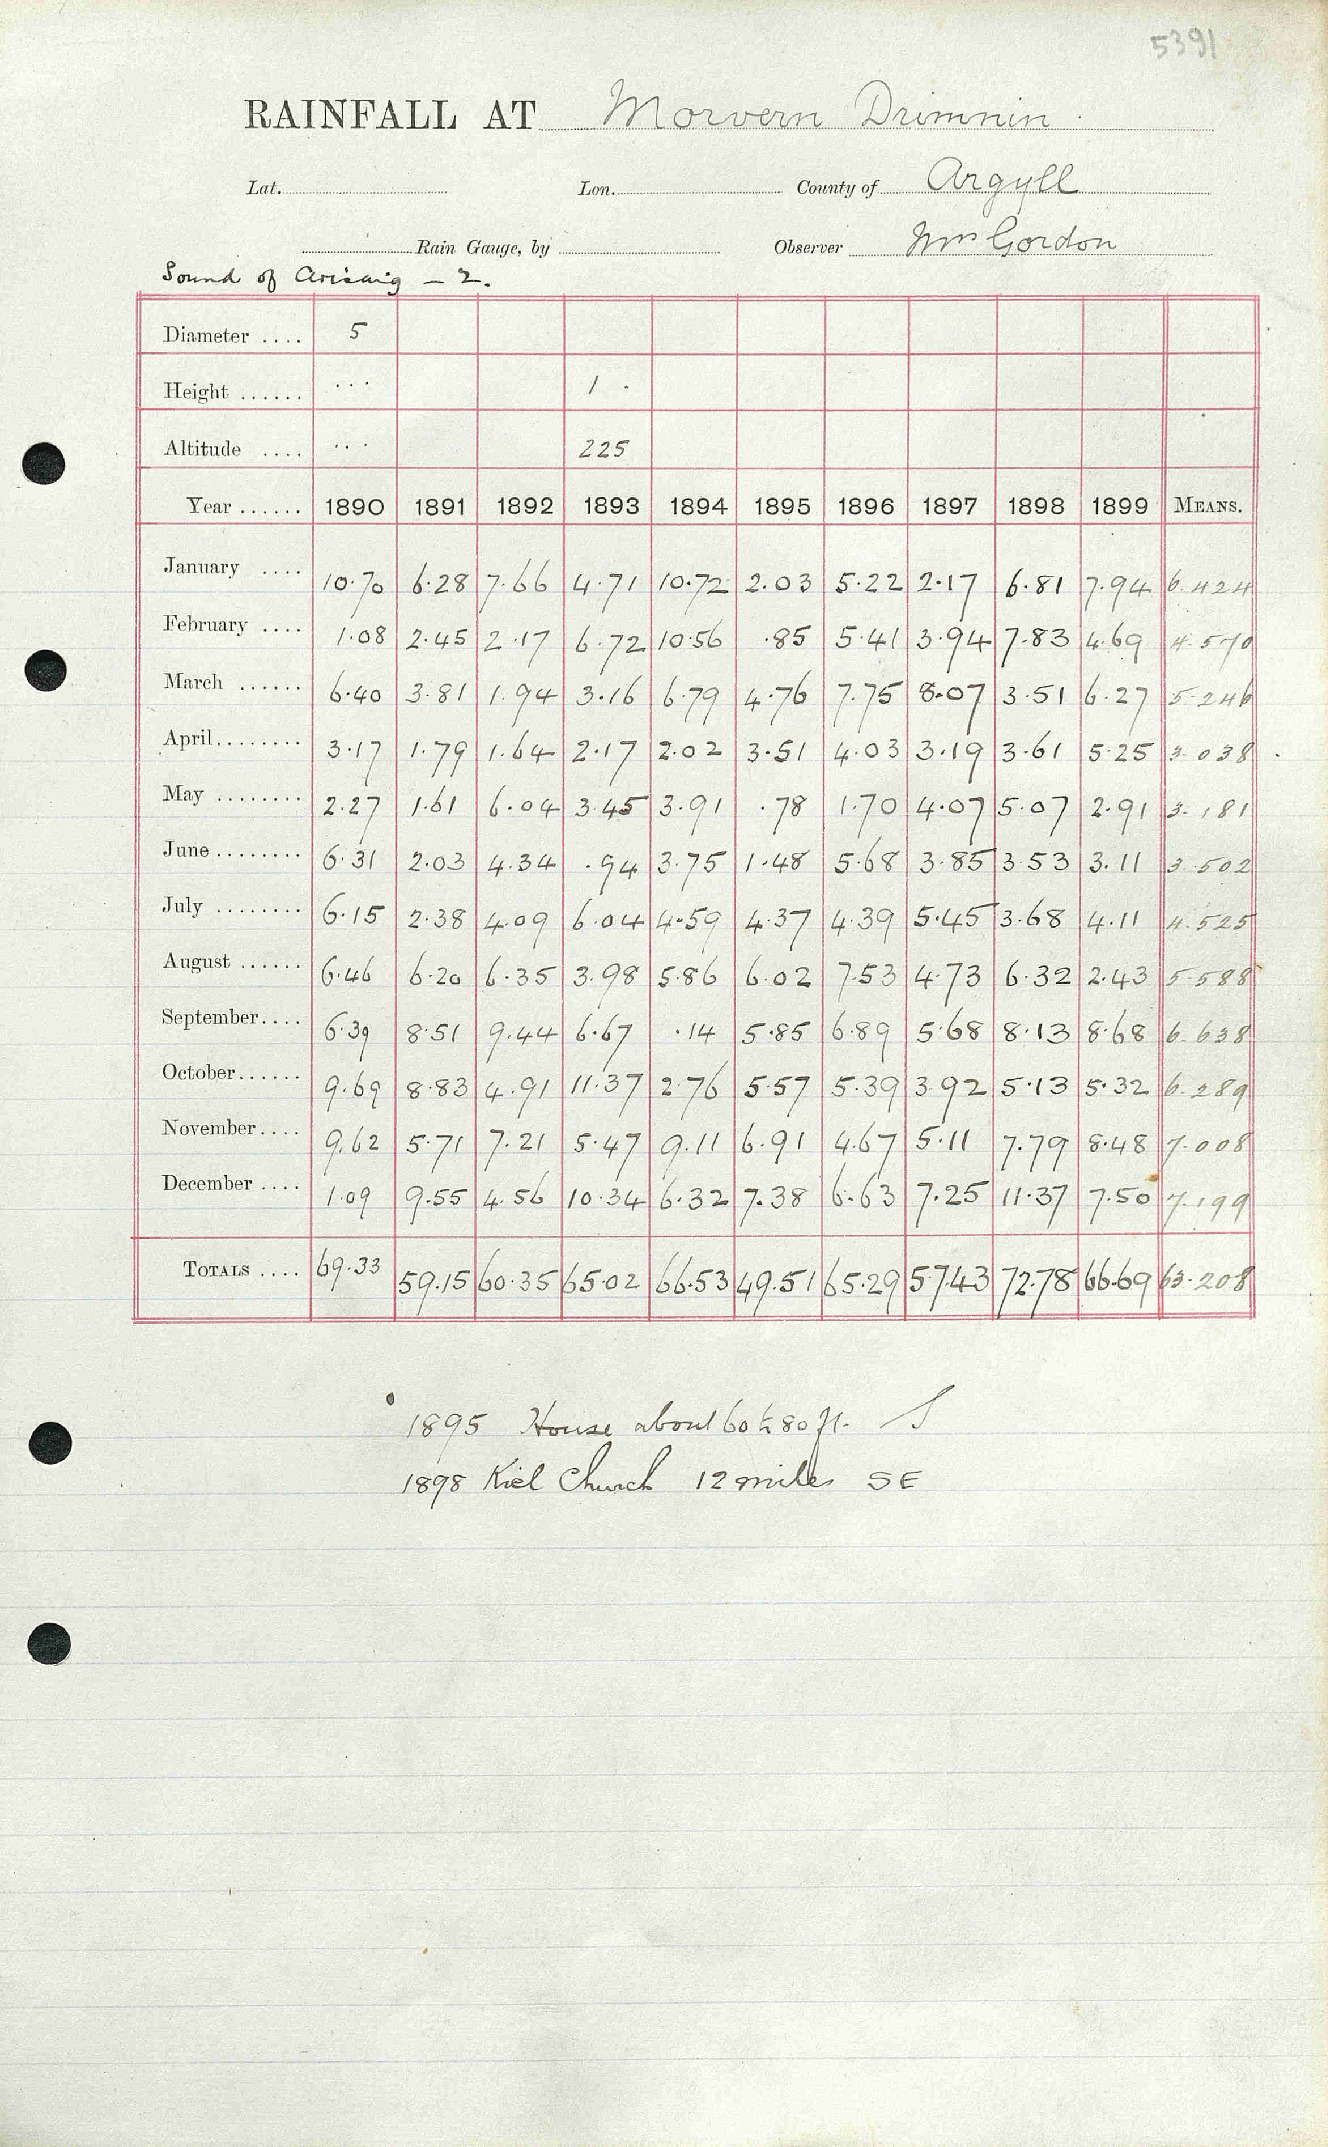 5391
RAINFALL AT Morvern Drimnin
Lat. Lon. County of Argyll
Rain Gauge, by Observer Mrs Gordon
Sound of Arisaig - 2.
Diameter .... 5
Height ...... ... 1.
Altitude .... ... 225
Year ...... 1890 1891 1892 1893 1894 1895 1896 1897 1898 1899 MEANS.
January .... 10.70 6.28 7.66 4.71 10.72 2.03 5.22 2.17 6.81 7.94 6.424
February .... 1.08 2.45 2.17 6.72 10.56 .85 5.41 3.94 7.83 4.69 4.570
March ...... 6.40 3.81 1.94 3.16 6.79 4.76 7.75 8.07 3.51 6.27 5.246
April........ 3.17 1.79 1.64 2.17 2.02 3.51 4.03 3.19 3.61 5.25 3.038
May ........ 2.27 1.61 6.04 3.45 3.91 .78 1.70 4.07 5.07 2.91 3.181
June........ 6.31 2.03 4.34 .94 3.75 1.48 5.68 3.85 3.53 3.11 3.502
July ........ 6.15 2.38 4.09 6.04 4.59 4.37 4.39 5.45 3.68 4.11 4.525
August ...... 6.46 6.20 6.35 3.98 5.86 6.02 7.53 4.73 6.32 2.43 5.588
September.... 6.39 8.51 9.44 6.67 .14 5.85 6.89 5.68 8.13 8.68 6.638
October...... 9.69 8.83 4.91 11.37 2.76 5.57 5.39 3.92 5.13 5.32 6.289
November.... 9.62 5.71 7.21 5.47 9.11 6.91 4.67 5.11 7.79 8.48 7.008
December .... 1.09 9.55 4.56 10.34 6.32 7.38 6.63 7.25 11.37 7.50 7.199
TOTALS .... 69.33 59.15 60.35 65.02 66.53 49.51 65.29 57.43 72.78 66.69 63.208
1895 House about 60 to 80 ft. S
1898 Kiel Church 12 miles SE